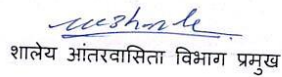 शालेय आंतरवासिता विभाग प्रमुख